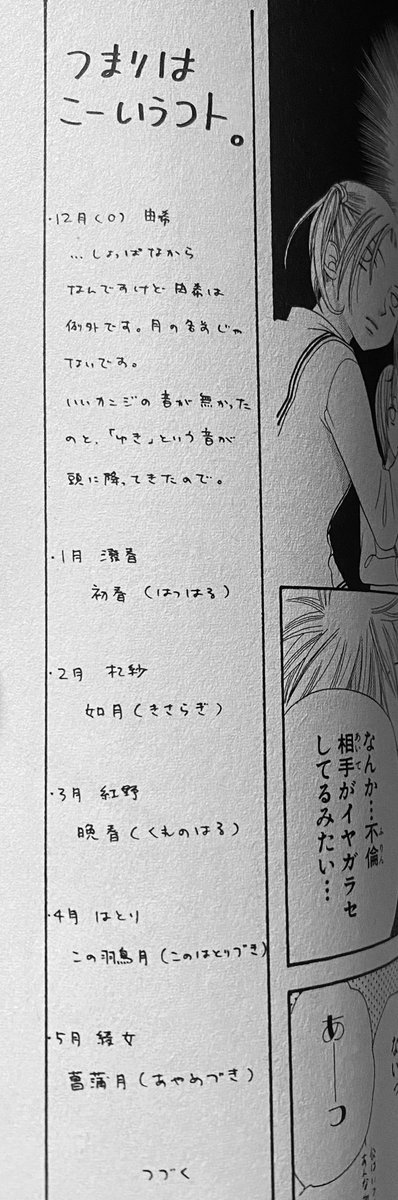 つまりは
こーいうコト。
・12月(0) 由希
…しょっぱなから
なんですけど由希は
例外です。月の名前じゃ
ないです。
いいカンジの音が無かった
のと、「ゆき」という音が
頭に降ってきたので。
・1月 潑春
初春(はつはる)
・2月 杞紗
如月(きさらぎ)
・3月 紅野
晩春(くれのはる)
・4月 はとり
この羽鳥月(このはとりづき)
・5月 綾女
菖蒲月(あやめづき)
つづく
なんか…不倫
相手がイヤガラセ
してるみたい…
あーっ